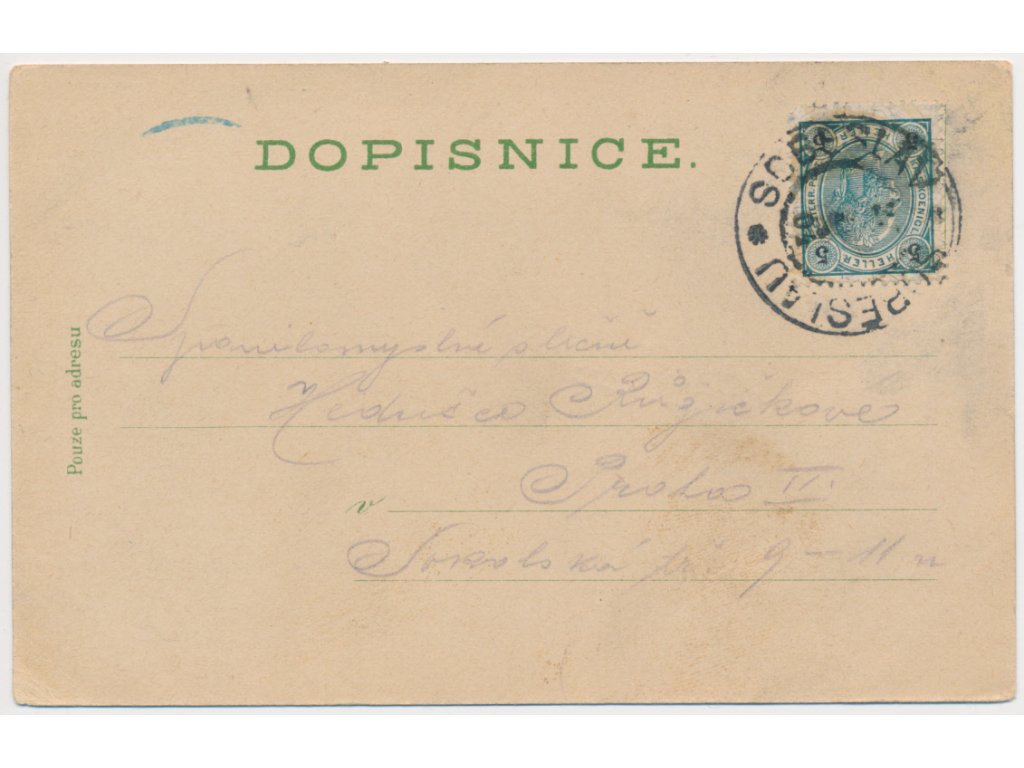 DOPISNICE.
SOBĚSLAV
SOBĚSLAU
5 HELLER 5
Pouze pro adresu
Spanilomyslné slečně
Hedušce Růžičkové
v Praha II.
Sokolská tř. 9 – 11 n